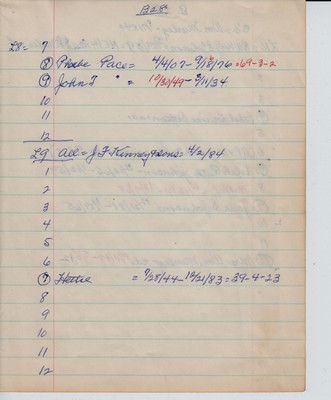 L8= 7
8 Phebe Pace= 4/4/07- 9/18/76=69-8-2
9 John T " = 10/30/47- 8/11/34
10
11
12
L9 all= J F Kinney +sons= 4/2/84
1
2
3
4
5
6
7 Hettie = 7/28/44-12/21/83=39-4-23
8
9
10
11
12